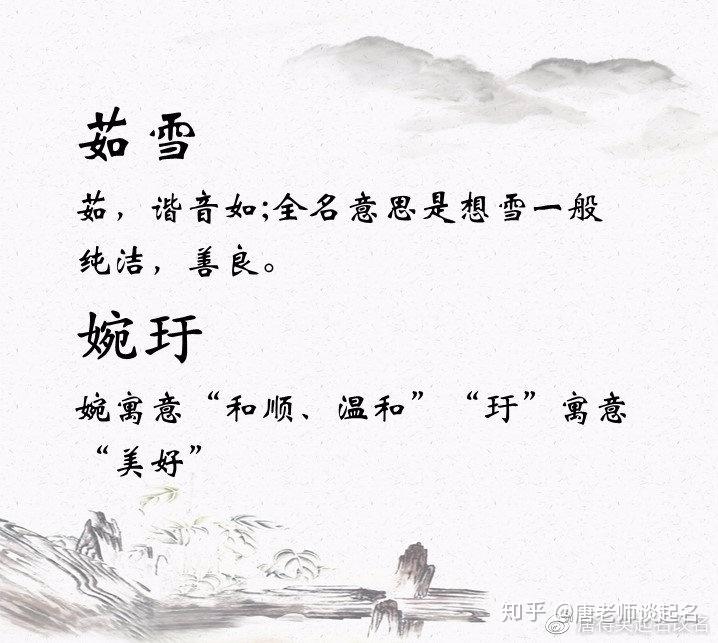 茹雪
茹，谐音如;全名意思是想雪一般
纯洁，善良。
婉玗
婉寓意“和顺、温和”“玗”寓意
“美好”
知乎 @唐老师谈起名